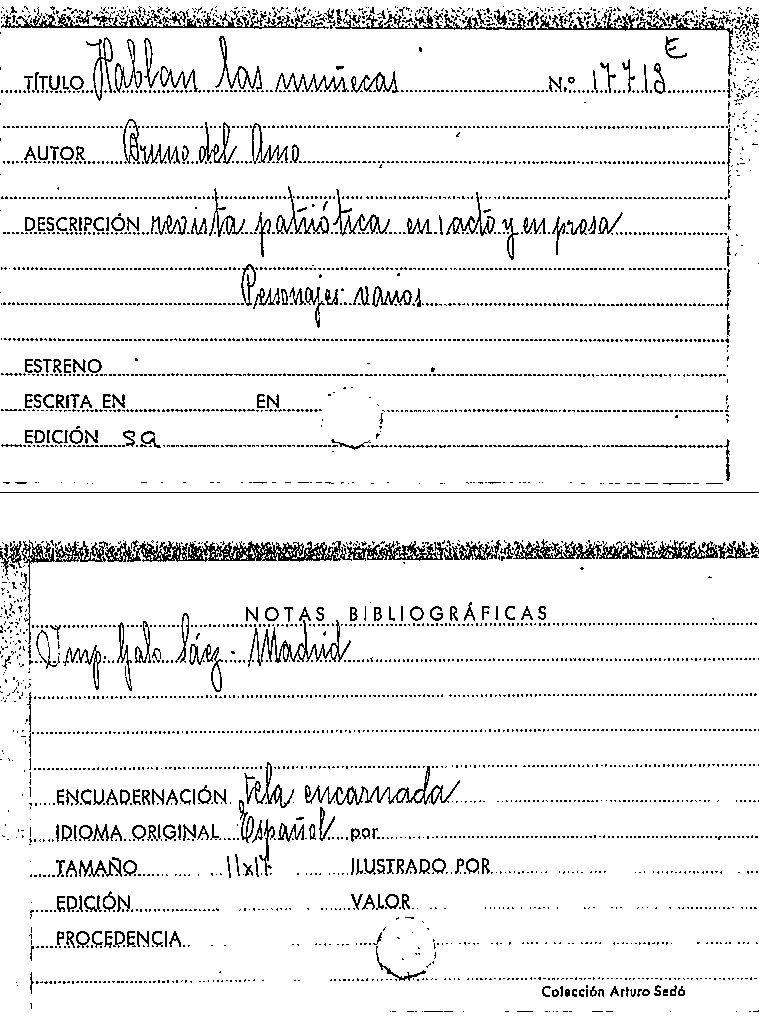 E
TÍTULO Hablan las muñecas N.º 17713
AUTOR Bruno del Amo
DESCRIPCIÓN revista patriótica en 1 acto y en prosa
Personajes: varios
ESTRENO
ESCRITA EN EN
EDICIÓN sa
NOTAS BIBLIOGRÁFICAS
Imp. Galo Sáez - Madrid
ENCUADERNACIÓN tela encarnada
IDIOMA ORIGINAL Español por
TAMAÑO 11x17 ILUSTRADO POR
EDICIÓN VALOR
PROCEDENCIA
Colección Arturo Sedó